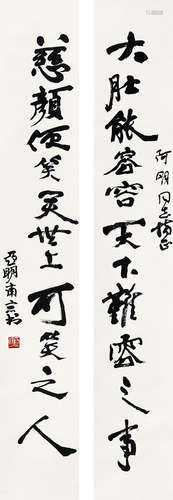 大肚能容容天下難容之事
阿明同志博正
慈顏便笑笑世上可笑之人
亞明